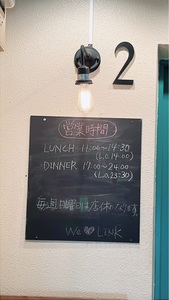 2
営業時間
LUNCH 11:00〜14:30
(L.O.14:00)
DINNER 17:00〜24:00
(L.O.23:30)
毎週日曜日は店休になります
We ♥ LINK